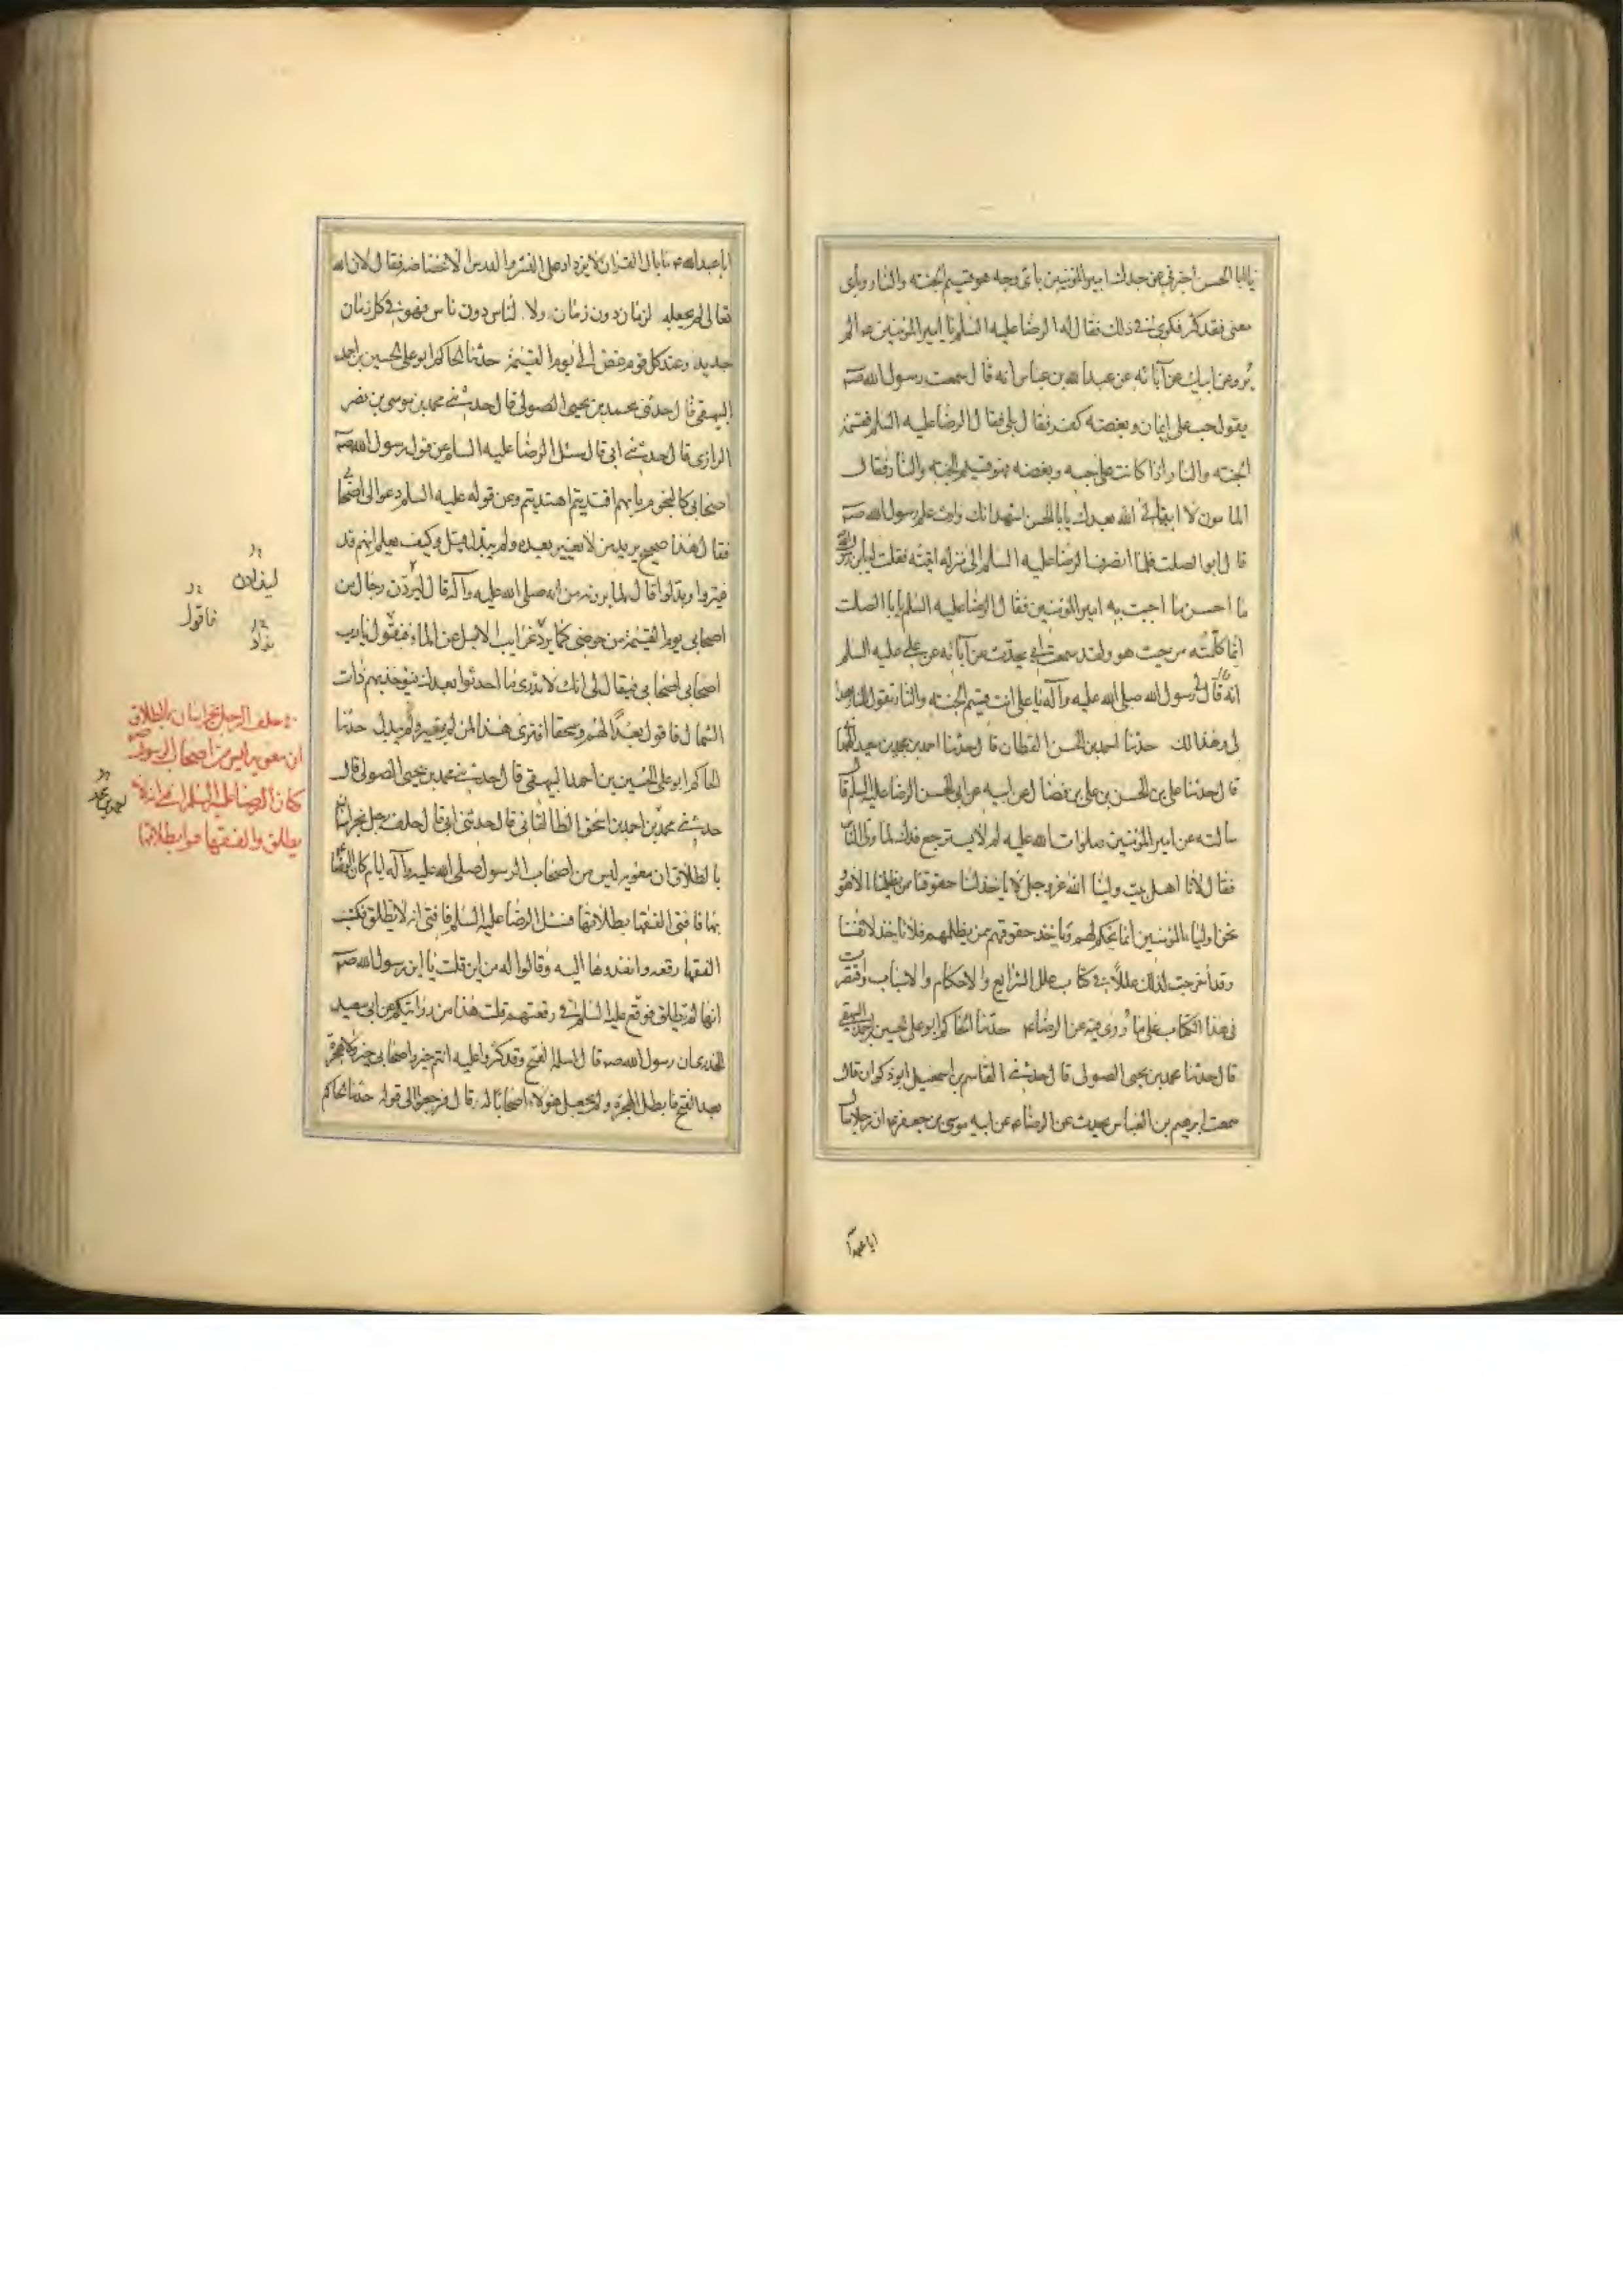 يا ابا الحسن اخبرني عن جدك امير المؤمنين باي وجه هو قسيم الجنه والنار وباي
معنى فقد كثر فكري في ذلك فقال له الرضا عليه السلم يا امير المؤمنين الم
ترو عن ابيك عن آبائه عن عبد الله بن عباس انه قال سمعت رسول الله صه
يقول حب علي ايمان وبغضه كفر فقال بلى فقال الرضا عليه السلم فقسمة
الجنه والنار اذا كانت على حبه وبغضه فهو قسيم الجنه والنار فقال
المامون لا ابقاني الله بعدك يا ابا الحسن اشهد انك وارث علم رسول الله صه
قال ابو الصلت فلما انصرف الرضا عليه السلم الى منزله اتيته فقلت له يا بن رسول الله
ما احسن ما اجبت به امير المؤمنين فقال الرضا عليه السلم يا ابا الصلت
انما كلمته من حيث هو ولقد سمعت ابي يحدث عن آبائه عن علي عليه السلم
انه قال لي رسول الله صلى الله عليه وآله يا علي انت قسيم الجنه والنار تقول للنار هذا
لي وهذا لك حدثنا احمد بن الحسن القطان قال حدثنا احمد بن محمد بن سعيد الهمداني
قال حدثنا علي بن الحسن بن علي بن فضال عن ابيه عن ابي الحسن الرضا عليه السلم قال
سالته عن امير المؤمنين صلوات الله عليه لم لا يسترجع فدك لما ولي الناس
فقال لانا اهل بيت ولينا الله عز وجل لا ياخذ لنا حقوقنا ممن ظلمنا الا هو
نحن اولياء المؤمنين انما نحكم لهم وناخذ حقوقهم ممن يظلمهم فلا ناخذ لانفسنا
وقد اخرجت لذلك عللا في كتاب علل الشرايع والاحكام والاسباب واقتصرت
في هذا الكتاب على ما روي فيه عن الرضا ع حدثنا الحاكم ابو علي الحسين بن احمد البيهقي
قال حدثنا محمد بن يحيى الصولي قال حدثني القاسم بن اسمعيل ابو ذكوان قال
سمعت ابرهيم بن العباس يحدث عن الرضا ع عن ابيه موسى بن جعفر ع ان رجلا سال
ابا عبد ا
ابا عبد الله ع ما بال القران لا يزداد على النشر والدرس الا غضاضه فقال لان الله
تعالى لم يجعله لزمان دون زمان ولا لناس دون ناس فهو في كل زمان
جديد وعند كل قوم غض الى يوم القيمة حدثنا الحاكم ابو علي الحسين بن احمد
البيهقي قال حدثني محمد بن يحيى الصولي قال حدثني محمد بن موسى بن نصر
الرازي قال حدثني ابي قال سئل الرضا عليه السلم عن قول رسول الله صه
اصحابي كالنجوم بايهم اقتديتم اهتديتم وعن قوله عليه السلم دعوا لي اصحابي
فقال هذا صحيح يريد من لا يغيير بعده ولم يبدل قيل وكيف يعلم انهم قد
غيروا وبدلوا قال لما يرونه من انه صلى الله عليه وآله قال ليردن رجال من
اصحابي يوم القيمة من حوضي كما يرد غرايب الابل عن الماء فيقول يا رب
اصحابي اصحابي فيقال لي انك لا تدري ما احدثوا بعدك فيؤخذ بهم ذات
الشمال فاقول بعدا لهم وسحقا افترى هذا لمن لم يغير ولم يبدل حدثنا
الحاكم ابو علي الحسين بن احمد البيهقي قال حدثني محمد بن يحيى الصولي قال
حدثني محمد بن احمد بن اسحق الطالقاني قال حدثني ابي قال حلف رجل بخراسان
بالطلاق ان معويه ليس من اصحاب الرسول صلى الله عليه وآله ايام كان الرضا ع
بها فافتى الفقها بطلاقها فسئل الرضا عليه السلم فافتى انه لا يطلق فكتب
الفقها رقعه وانفذوها اليه وقالوا له من اين قلت يا ابن رسول الله صه
انها لم تطلق فوقع عليه السلم في رقعتهم قلت هذا من روايتكم عن ابي سعيد
الخدري ان رسول الله صه قال لمسلمة الفتح وقد كثروا عليه انتم خير واصحابي خير ولا هجرة
بعد الفتح فابطل الهجرة ولم يجعل هؤلاء اصحابا له قال فرجعوا الى قوله حدثنا الحاكم
ليذادن
فاقول
يذاد
حلف الرجل بخراسان بالطلاق
ان معويه ليس من اصحاب الرسول صه
كان الرضا عليه السلم افتى انه لا
يطلق والفقها هو ابطلاقها
احمد بن محمد